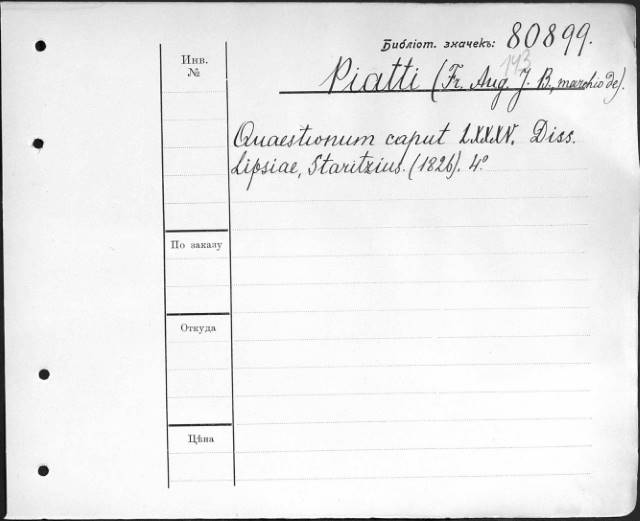 Библіот. значекъ: 80899.
143
Инв.
№
Piatti (Fr. Aug. J. B., marchio de).
Quaestionum caput LXXXV. Diss.
Lipsiae, Staritzius. (1826). 4°
По заказу
Откуда
Цѣна